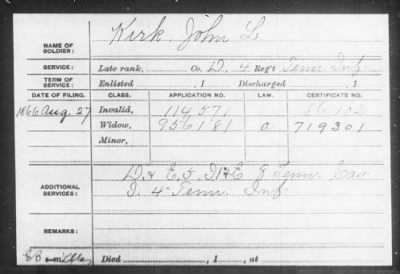 NAME OF SOLDIER: Kirk, John L.
SERVICE: Late rank, Co. D, 4 Reg't Tenn. Inf.
TERM OF SERVICE: Enlisted , 1 Discharged , 1
DATE OF FILING. CLASS. APPLICATION NO. LAW. CERTIFICATE NO.
1866 Aug. 27 Invalid, 114571
Widow, 956181 a 719301
Minor,
ADDITIONAL SERVICES: D & E. 5, D & E 8 Tenn. Cav.
I. 4 Tenn. Inf.
REMARKS:
Died , 1 , at